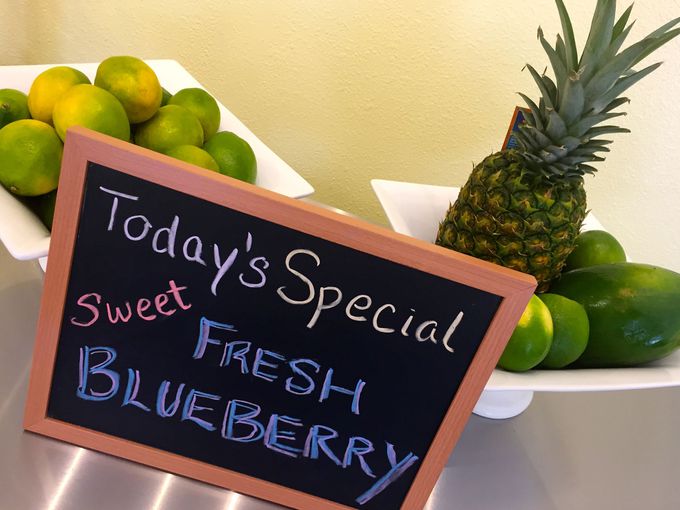 Today's Special
Sweet FRESH
BLUEBERRY